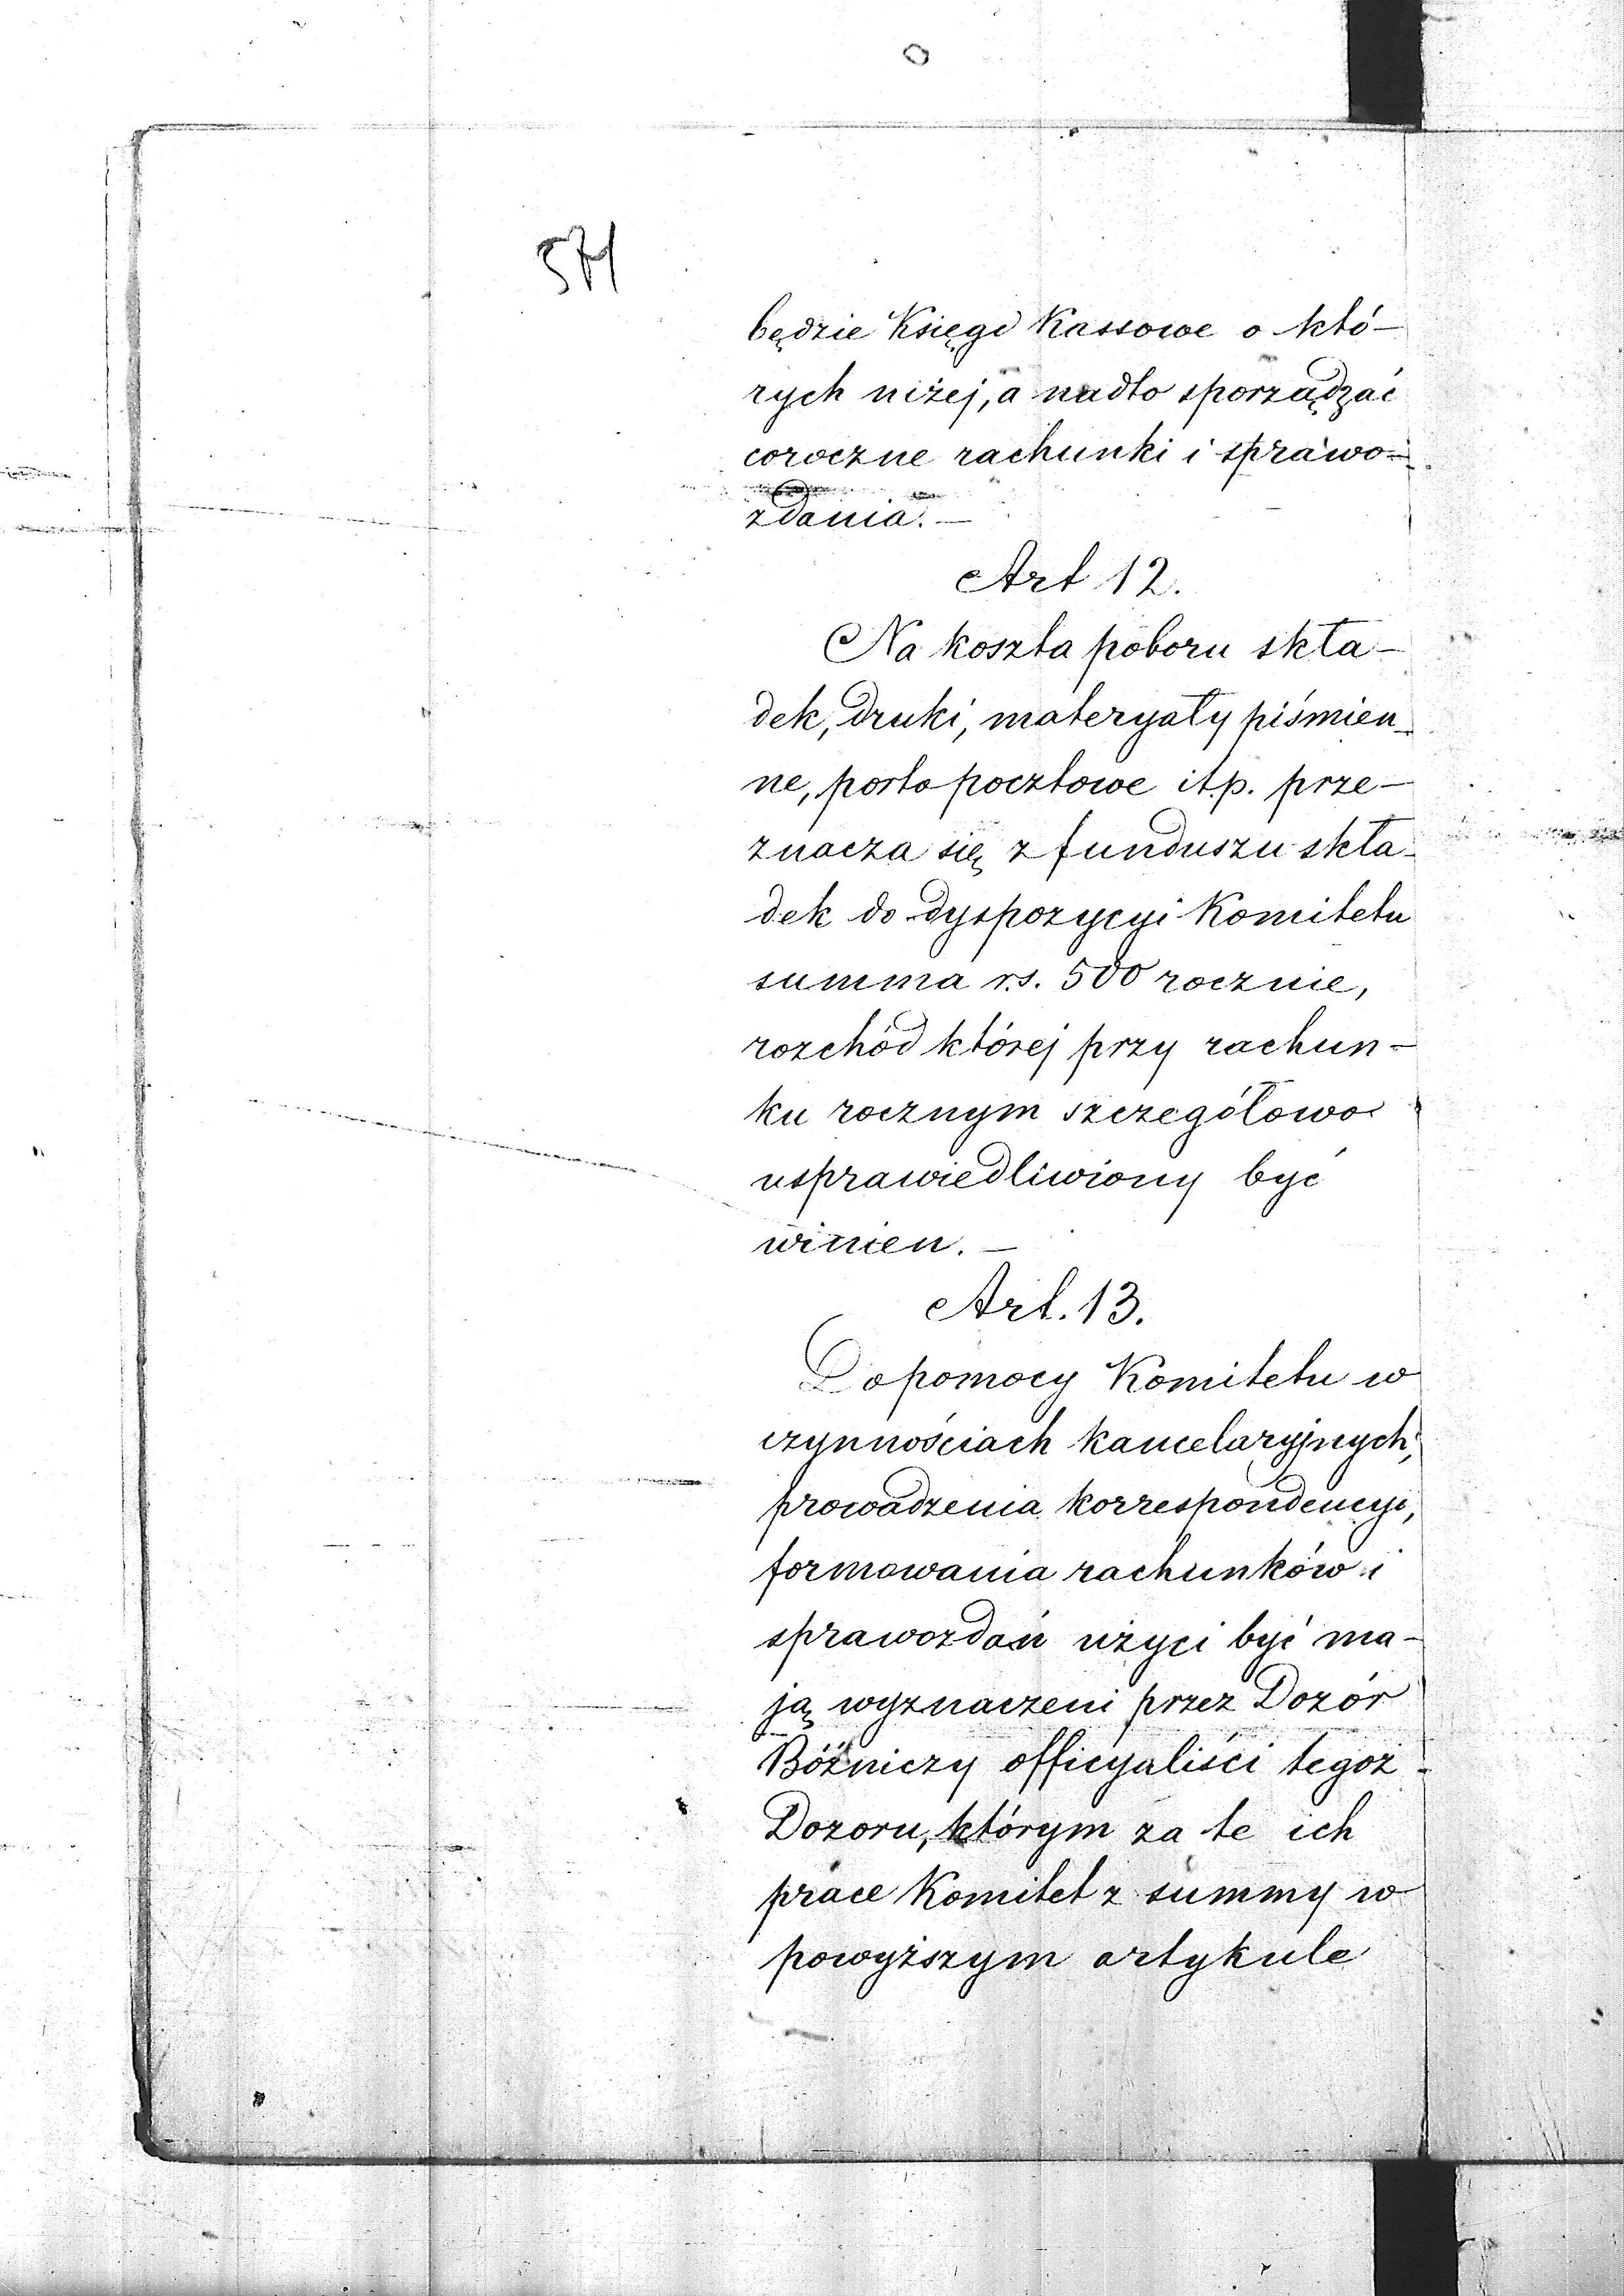 571
będzie Księgi Kassowe o któ–
rych niżej, a nadto sporządzać
coroczne rachunki i sprawo–
zdania. –
Art 12.
Na koszta poboru skła–
dek, druki, materyały piśmien–
ne, porto pocztowe itp. prze–
znacza się z funduszu skła–
dek do dyspozycyi Komitetu
summa r.s. 500 rocznie,
rozchód której przy rachun–
ku rocznym szczegółowo
usprawiedliwiony być
winien. –
Art. 13.
Do pomocy Komitetu w
czynnościach kancelaryjnych,
prowadzenia korrespondencyi,
formowania rachunków i
sprawozdań użyci być ma–
ją wyznaczeni przez Dozór
Bóżniczy officyaliści tegoż
Dozoru, którym za te ich
prace Komitet z summy w
powyższym artykule